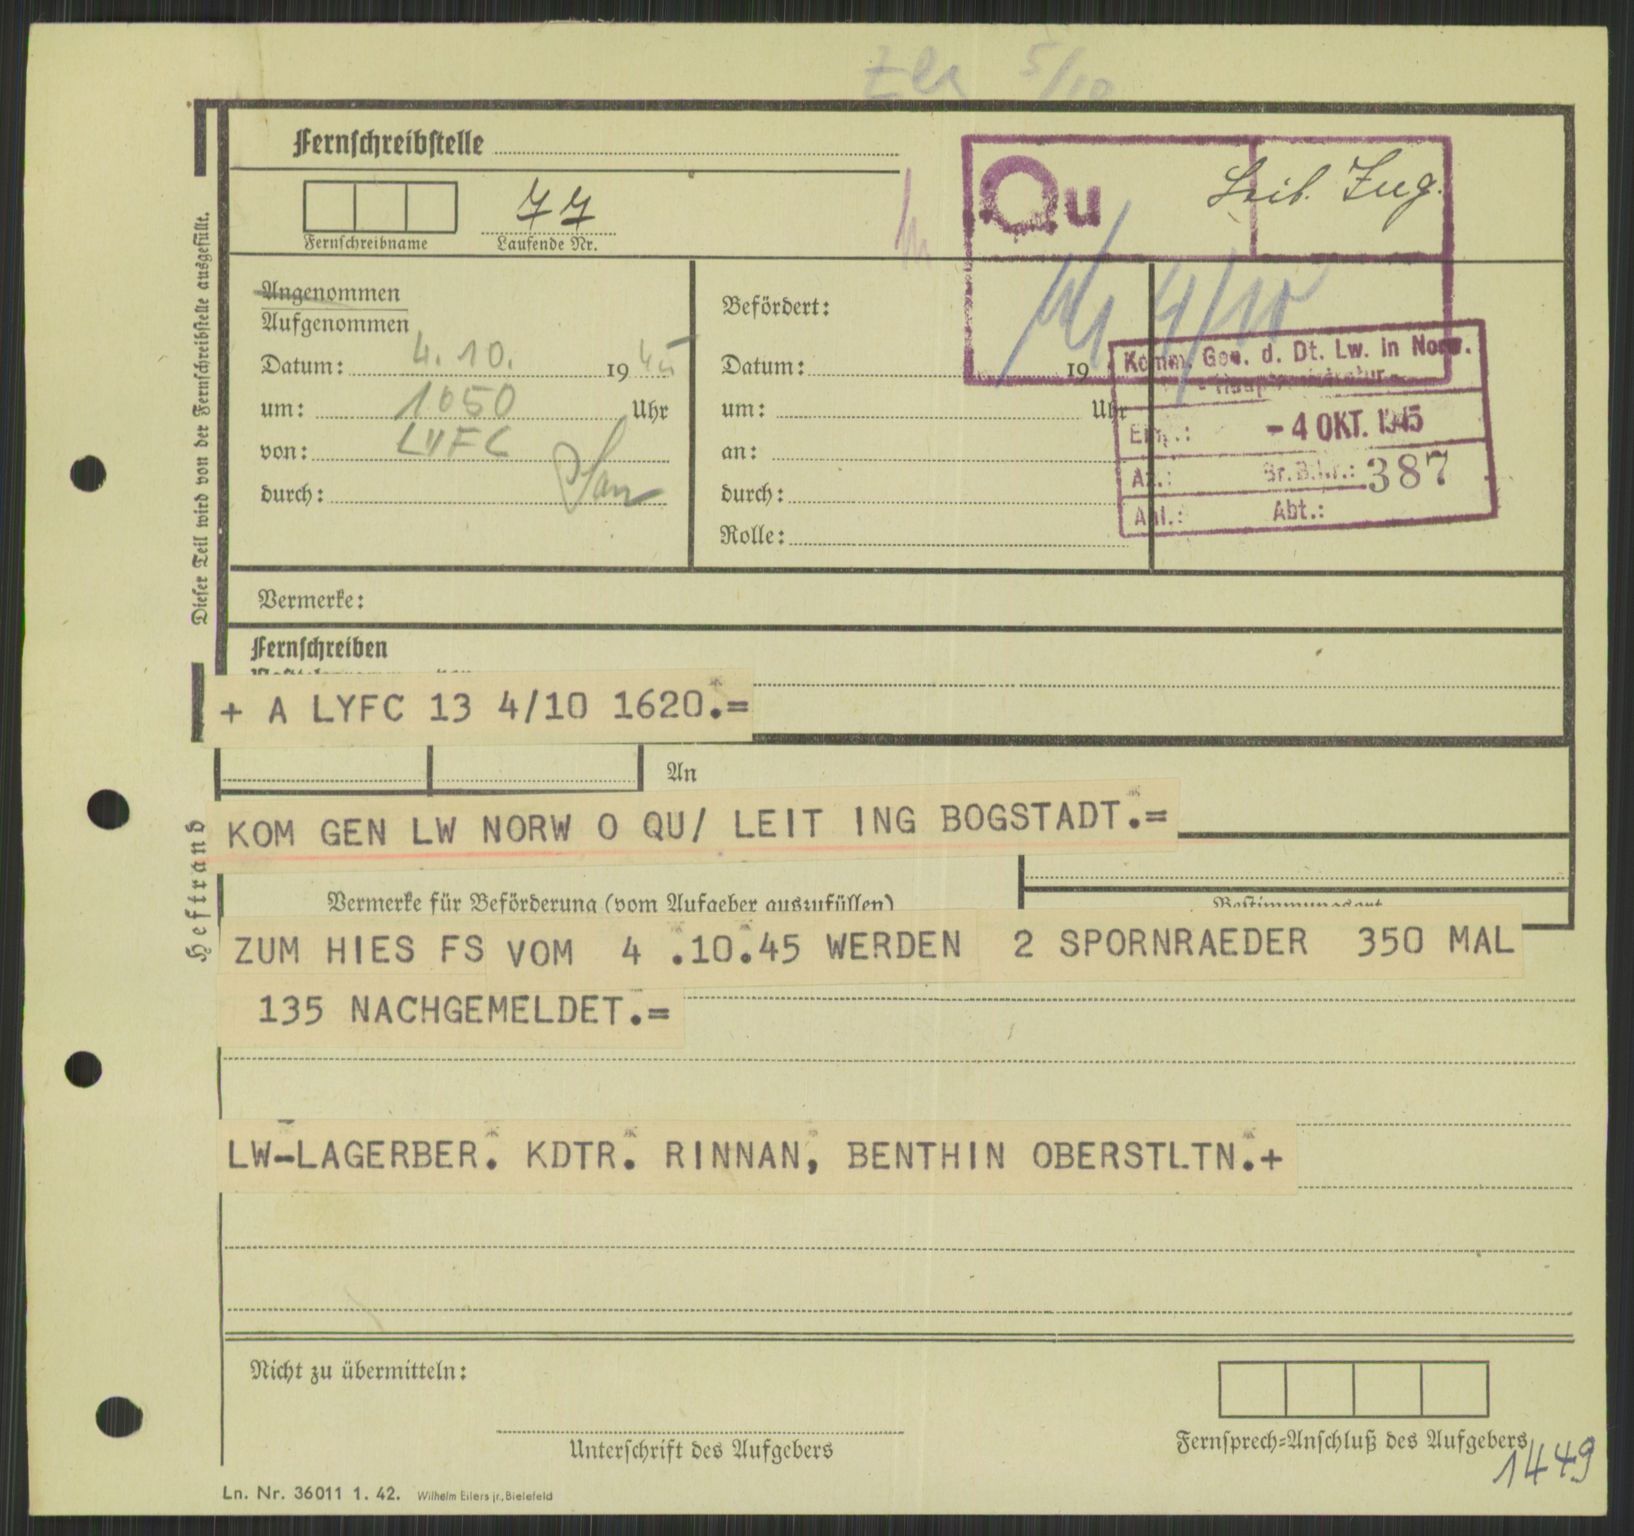 5/10
Fernschreibstelle
Qu
Leit. Jng.
77
Fernschreibname
Laufende Nr.
Dieser Teil wird von der Fernschreibstelle ausgefüllt.
Angenommen
Aufgenommen
Datum: 4. 10. 1945
um: 1050 Uhr
von: LYFC
durch:
Befördert:
Datum: 19
um: Uhr
an:
durch:
Rolle:
4/10
Komm. Gen. d. Dt. Lw. in Norw.
- Hauptregistratur -
Eing.: - 4 OKT. 1945
Az.: Br.B.Nr.: 387
Anl.: Abt.:
Vermerke:
Fernschreiben
+ A LYFC 13 4/10 1620.=
An
KOM GEN LW NORW O QU/ LEIT ING BOGSTADT.=
Heftrand
Vermerke für Beförderung (vom Aufgeber auszufüllen)
Bestimmungsort
ZUM HIES FS VOM 4 .10.45 WERDEN 2 SPORNRAEDER 350 MAL
135 NACHGEMELDET.=
LW-LAGERBER. KDTR. RINNAN, BENTHIN OBERSTLTN.+
Nicht zu übermitteln:
Unterschrift des Aufgebers
Fernsprech=Anschluß des Aufgebers
1449
Ln. Nr. 36011 1. 42. Wilhelm Eilers jr., Bielefeld